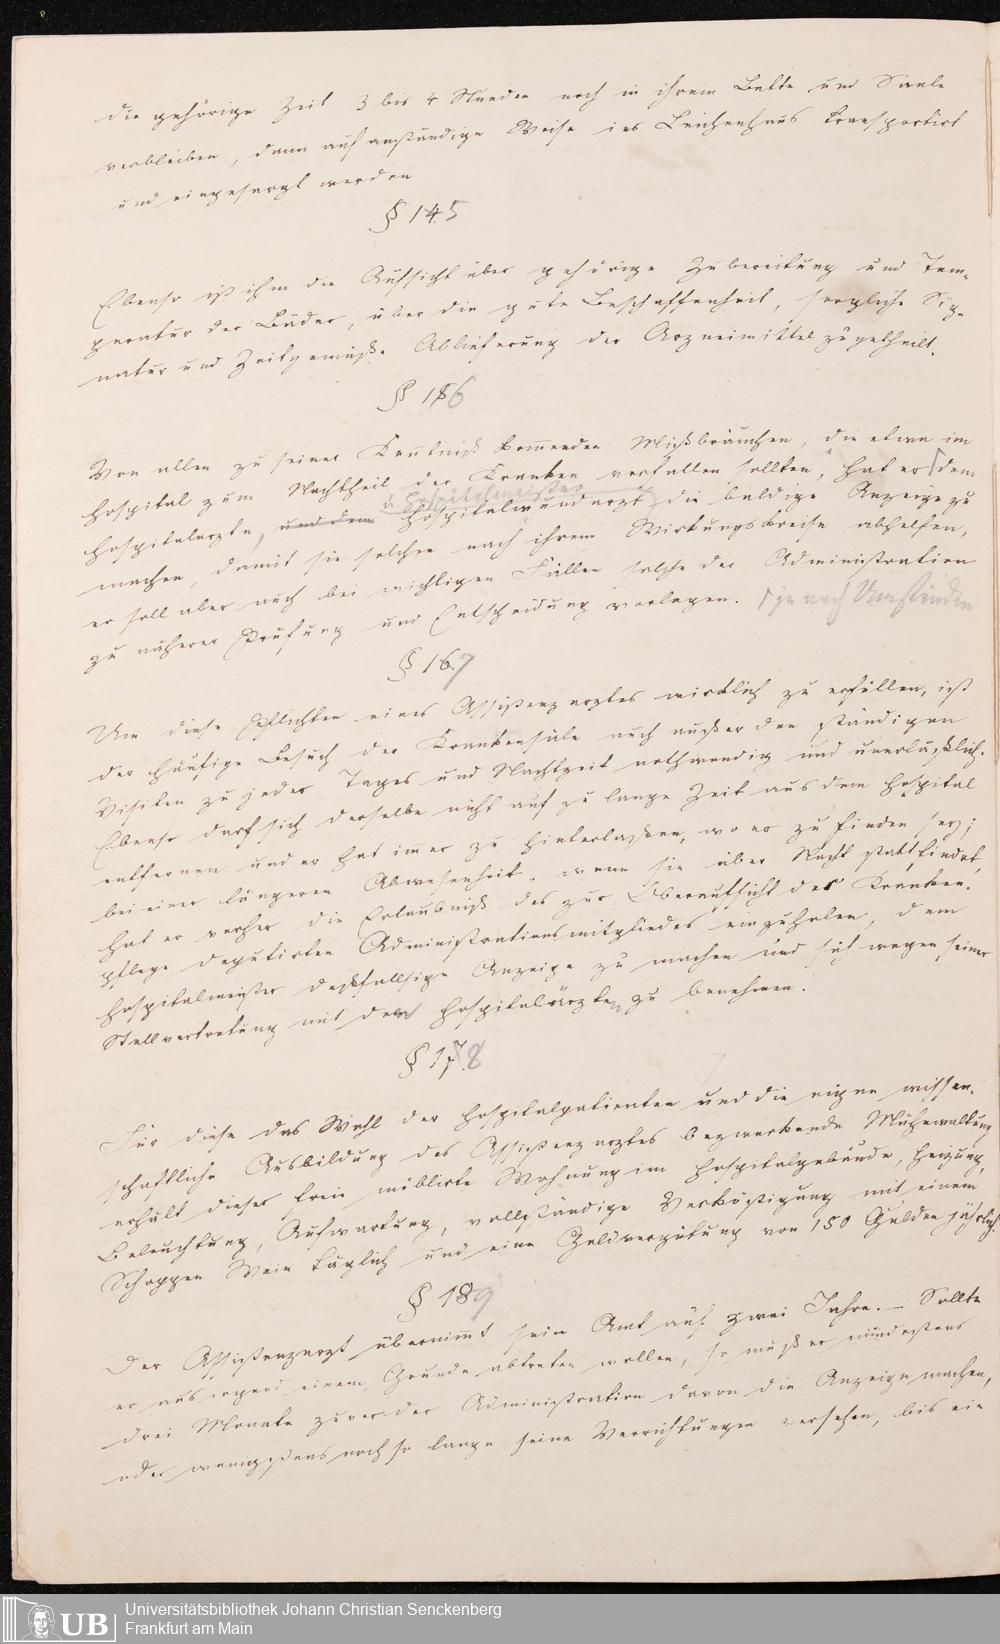 die gehörige Zeit 3 bis 4 Stunden noch in ihrem Bette und Saale
verbleiben, dann auf anständige Weise ins Leichenhaus transportirt
und eingesargt werden
§ 145
Ebenso ist ihm die Aufsicht über gehörige Zubereitung und Tem-
peratur der Bäder, über die gute Beschaffenheit, sergliche Sig-
natur und Zeitgemäße Ablieferung der Arzneimittel zugetheilt.
§ 156
Von allen zu seiner Kenntniß kommenden Mißbräuchen, die etwa im
Hospital zum Nachtheil der Kranken verfallen sollten, hat er dem
Hospitalarzte, und dem Hospitalwundarzt die baldige Anzeige zu
u Hospitalmeister
machen, damit sie solchen nach ihrem Wirkungskreise abhelfen,
er soll aber auch bei wichtigen Fällen solche der Administration
zu näherer Prüfung und Entscheidung vorlegen. je nach Umständen
§ 167
Um diese Pflichten eines Assistenzarztes wirklich zu erfüllen, ist
der häufige Besuch der Krankensäle auch außer den ständigen
Visiten zu jeder Tages und Nachtzeit nothwendig und unerläßlich.
Ebenso darf sich derselbe nicht auf zu lange Zeit aus dem Hospital
entfernen und er hat immer zu hinterlaßen, wo er zu finden sey;
bei einer längeren Abwesenheit, wenn sie über Nacht stattfindet,
hat er vorher die Erlaubniß des zur Oberaufsicht der Kranken-
pflege deputirten Administrationsmitgliedes einzuholen, dem
Hospitalmeister deßfallsige Anzeige zu machen und sich wegen seiner
Stellvertretung mit den Hospitalärzten zu benehmen.
§ 178
Für diese das Wohl der Hospitalpatienten und die eigne wissen-
schaftliche Ausbildung des Assistenzarztes bezweckende Mühewaltung
erhält dieser freie möblirte Wohnung im Hospitalgebäude, Heizung,
Beleuchtung, Aufwartung, vollständige Verköstigung mit einem
Schoppen Wein täglich und eine Geldvergütung von 150 Gulden jährlich.
§ 189
Der Assistenzarzt übernimmt sein Amt auf zwei Jahre. – Sollte
er aus irgend einem Grunde abtreten wollen, so muß er mindestens
drei Monate zuvor der Administration davon die Anzeige machen,
oder wenigstens noch so lange seine Verrichtungen versehen, bis ein
UB Universitätsbibliothek Johann Christian Senckenberg
Frankfurt am Main